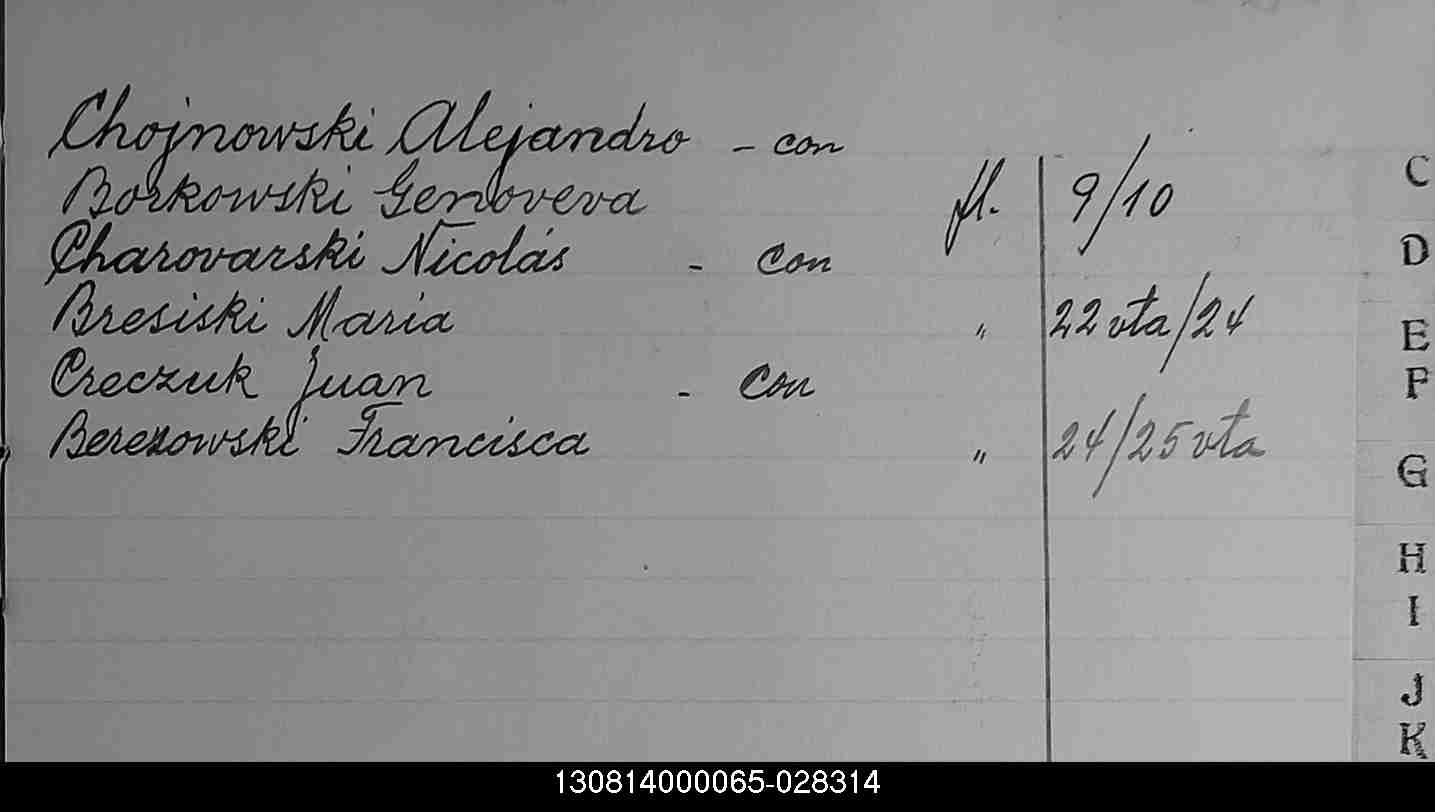 Chojnowski Alejandro - con
Borkowski Genoveva fl. 9/10
Charovarski Nicolás - Con
Bresiski Maria " 22 vta/24
Creczuk Juan - Con
Berezowski Francisca " 24/25 vta
C
D
E
F
G
H
I
J
K
130814000065-028314